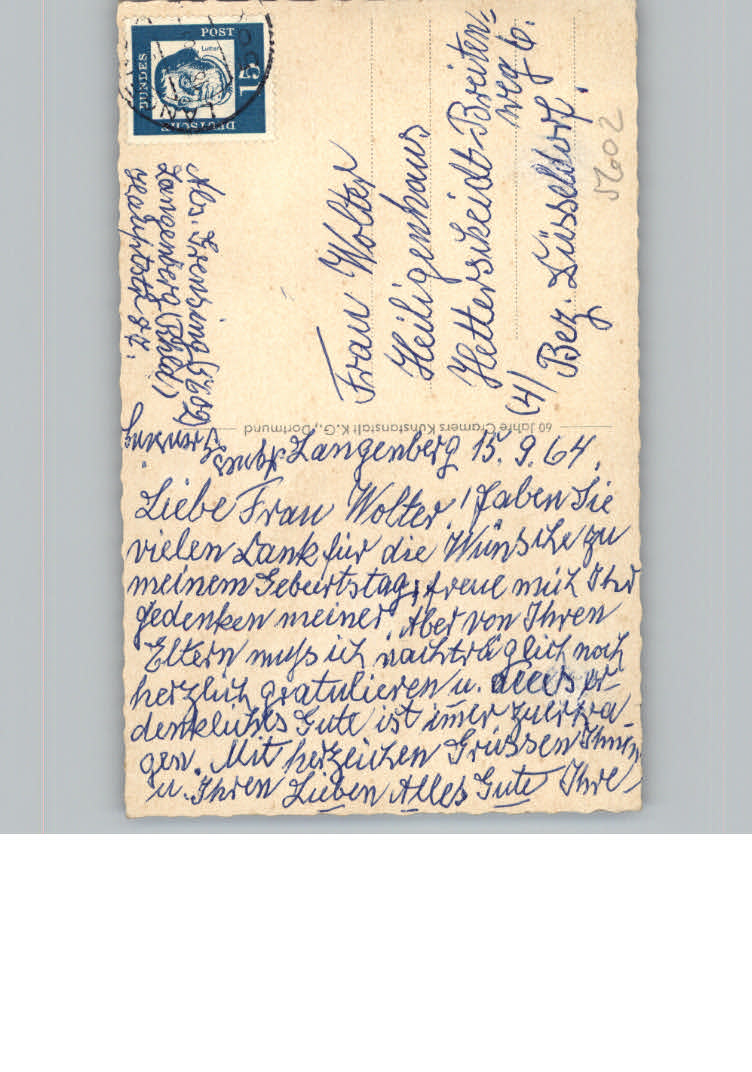 DEUTSCHE
BUNDES
POST
Luther
15
Abs. Grensing (5602)
Langenberg (Rhld)
Hauptstr. 84.
Frau Wolter
Heiligenhaus
Hetterscheidt-Breiten-
weg 6.
(4) Bez. Düsseldorf.
5602
60 Jahre Cramers Kunstanstalt K.G., Dortmund
Langenberg 15. 9. 64.
Liebe Frau Wolter! Haben Sie
vielen Dank für die Wünsche zu
meinem Geburtstag, freue mich Ihr
gedenken meiner. Aber von Ihren
Eltern muss ich nachträglich noch
herzlich gratulieren u. alles er-
denkliches Gute ist imer
gen. Mit herzlichen Grüssen Ihnen
u. Ihren Lieben Alles Gute Ihre